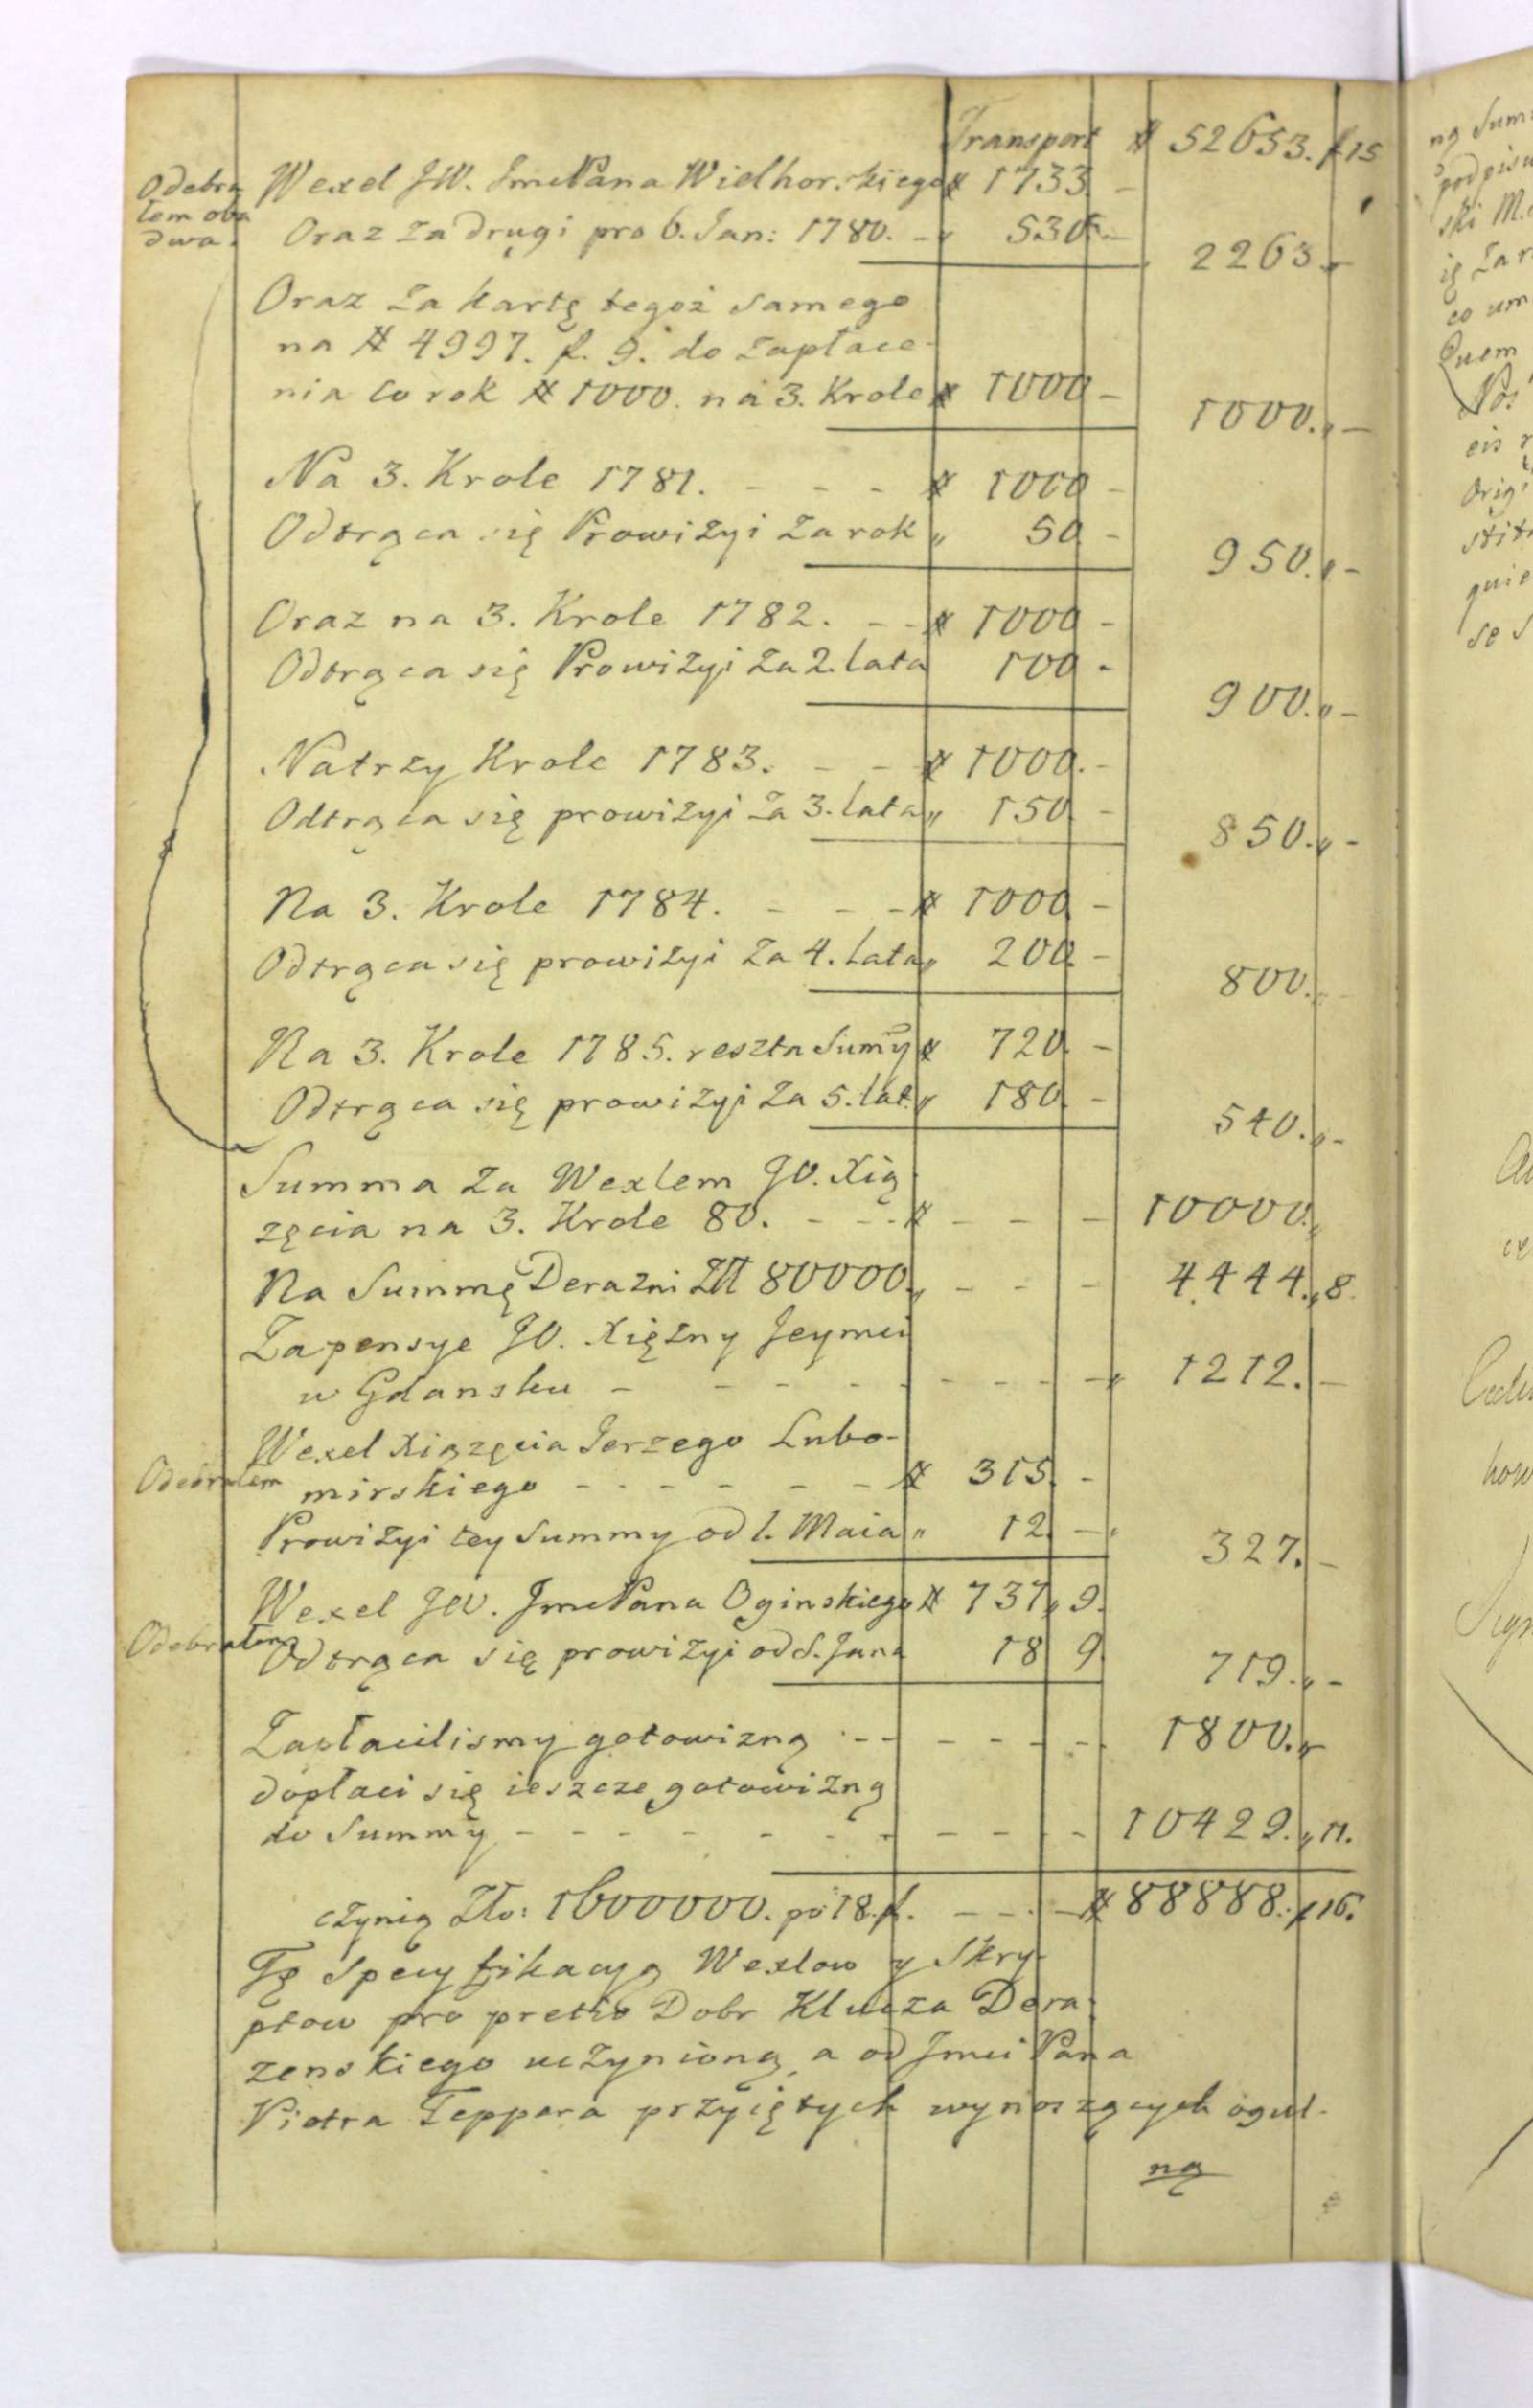 Transport # 52653. f 15
Odebra Wexel JW. JmcPana Wielhorskiego # 1733 –
łem oba
dwa. Oraz za drugi pro 6. Jan: 1780. – „ 530. – 2263 „ –
Oraz za kartę tegoż samego
na # 4997. f. 9. do zapłace-
nia co rok # 1000. na 3. Krole # 1000 – 1000. „ –
Na 3. Krole 1781. – – – # 1000 –
Odtrąca się Prowizyi za rok „ 50 – 950. „ –
Oraz na 3. Krole 1782. – – # 1000 –
Odtrąca się Prowizyi za 2. lata 100 – 900. „ –
Natrzy Krole 1783. – – # 1000. –
Odtrąca się prowizyi za 3. lata „ 150 – 850. „ –
Na 3. Krole 1784. – – – # 1000 –
Odtrąca się prowizyi za 4. lata „ 200 – 800. „ –
Na 3. Krole 1785. reszta Sumy # 720 –
Odtrąca się prowizyi za 5. lat „ 180 – 540. „ –
Summa za Wexlem JO. Xią
zęcia na 3. Krole 80. – – – # – – – 10000. „
Na Summę Derazni Złł 80000 „ – – – 4444. „ 8.
Za pensye JO. Xiężny Jeymci
w Gdansku – – – – – – – – – „ 1212. –
Wexel Xiązęcia Jerzego Lubo-
Odebrałem mirskiego – – – – – – # 315. –
Prowizyi tey Summy od 1. Maia „ 12 – „ 327. –
Wexel JW. JmcPana Oginskiego # 737 „ 9.
Odebrałem Odtrąca się prowizyi od S. Jana 18 9 719. „ –
Zapłacilismy gotowizną – – – – – – 1800. „ –
dopłaci się ieszcze gotowizną
do Summy – – – – – – – – – 10429. „ 11.
czynią Zło: 1600000. po 18. f. – – – # 88888. f 16.
Tę Specyfikacyą Wexlow y Skry-
ptow pro pretio Dobr Klucza Dera-
zenskiego uczynioną, a od Jmci Pana
Piotra Teppera przyiętych wynoszących ogul-
ną
ną Sum
podpisu
ski M.
ię Za
co um
Quem
Nos
eis
Orig
stit
quie
se
how